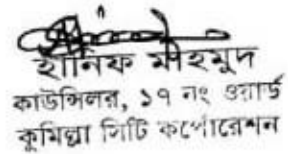 হানিফ মাহমুদ
কাউন্সিলর, ১৭ নং ওয়ার্ড
কুমিল্লা সিটি কর্পোরেশন